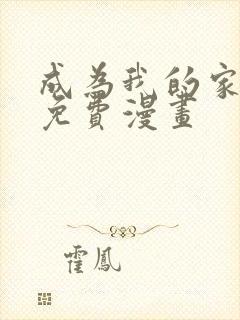 成為我的家
免費漫畫
霍鳳